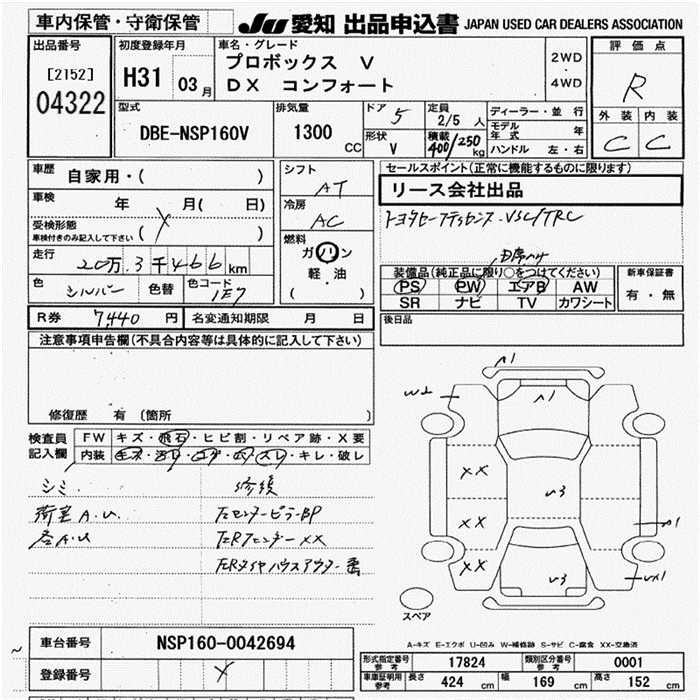 車内保管・守衛保管 JU 愛知 出品申込書 JAPAN USED CAR DEALERS ASSOCIATION
出品番号
[2152]
04322
初度登録年月
H31 03 月
車名・グレード
プロボックス V
DX コンフォート
2WD
・
4WD
評価点
R
外装 内装
C C
型式
DBE-NSP160V
排気量
1300 CC
ドア 5
形状 V
定員
2/5 人
積載
400/250 kg
ディーラー・並行
モデル年式 年
ハンドル 左・右
車歴
自家用・( )
車検 年 月( 日)
受検形態
車検付きのみ記入して下さい ( X )
走行
20万3千466km
色 シルバー 色替 色コード 1E7
シフト
AT
冷房
AC
燃料
ガソリン
軽・油
( )
セールスポイント(正常に機能するものに限ります)
リース会社出品
トヨタセーフティセンス・VSC/TRC
装備品(純正品に限り○をつけてください)
PS PW エアB AW
SR ナビ TV カワシート
新車保証書
有・無
R券 7,440 円 名変通知期限 月 日
後日品
注意事項申告欄(不具合内容等は具体的に記入して下さい)
修復歴 有 (箇所 )
検査員記入欄
FW キズ・飛石・ヒビ割・リペア跡・X要
内装 キズ・汚レ・コゲ・穴・スレ・キレ・破レ
シミ 修復
荷室A.U 左センターピラーBP
左RフェンダーXX
左Rタイヤハウスアウター
A1
W2
A1
XX
U3
XX
A1
XX
U3
UX1
スペア
A-キズ E-エクボ U-凹み W-補修跡 S-サビ C-腐食 XX-交換済
車台番号 NSP160-0042694
登録番号 X
形式指定番号 参考 17824 類別区分番号 参考 0001
車庫証明用 参考 長さ 424 cm 幅 169 cm 高さ 152 cm